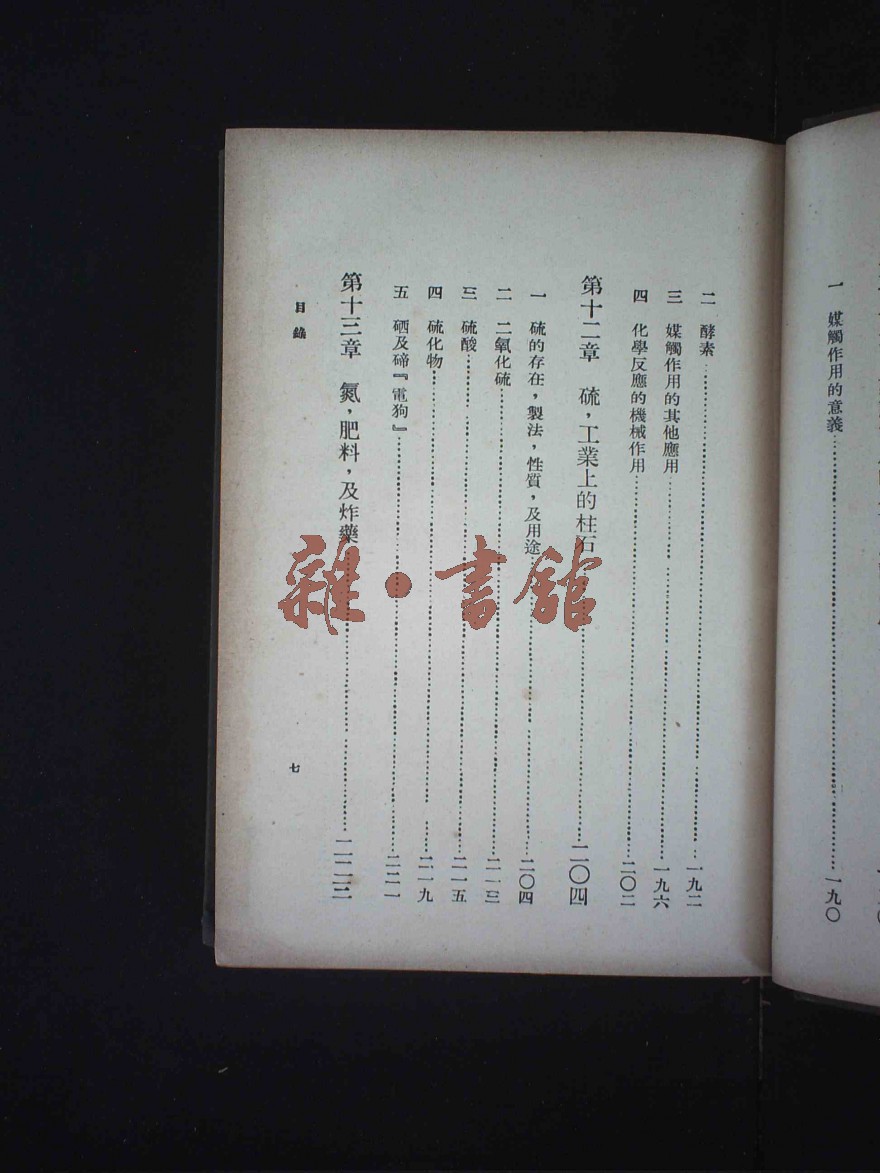 一　媒觸作用的意義……一九〇
二　酵素……一九二
三　媒觸作用的其他應用……一九六
四　化學反應的機械作用……二〇二
第十二章　硫，工業上的柱石……二〇四
一　硫的存在，製法，性質，及用途……二〇四
二　二氧化硫……二一三
三　硫酸……二一五
四　硫化物……二一九
五　硒及碲『電狗』……二二一
第十三章　氮，肥料，及炸藥……二二三
目錄
七
雜·書館